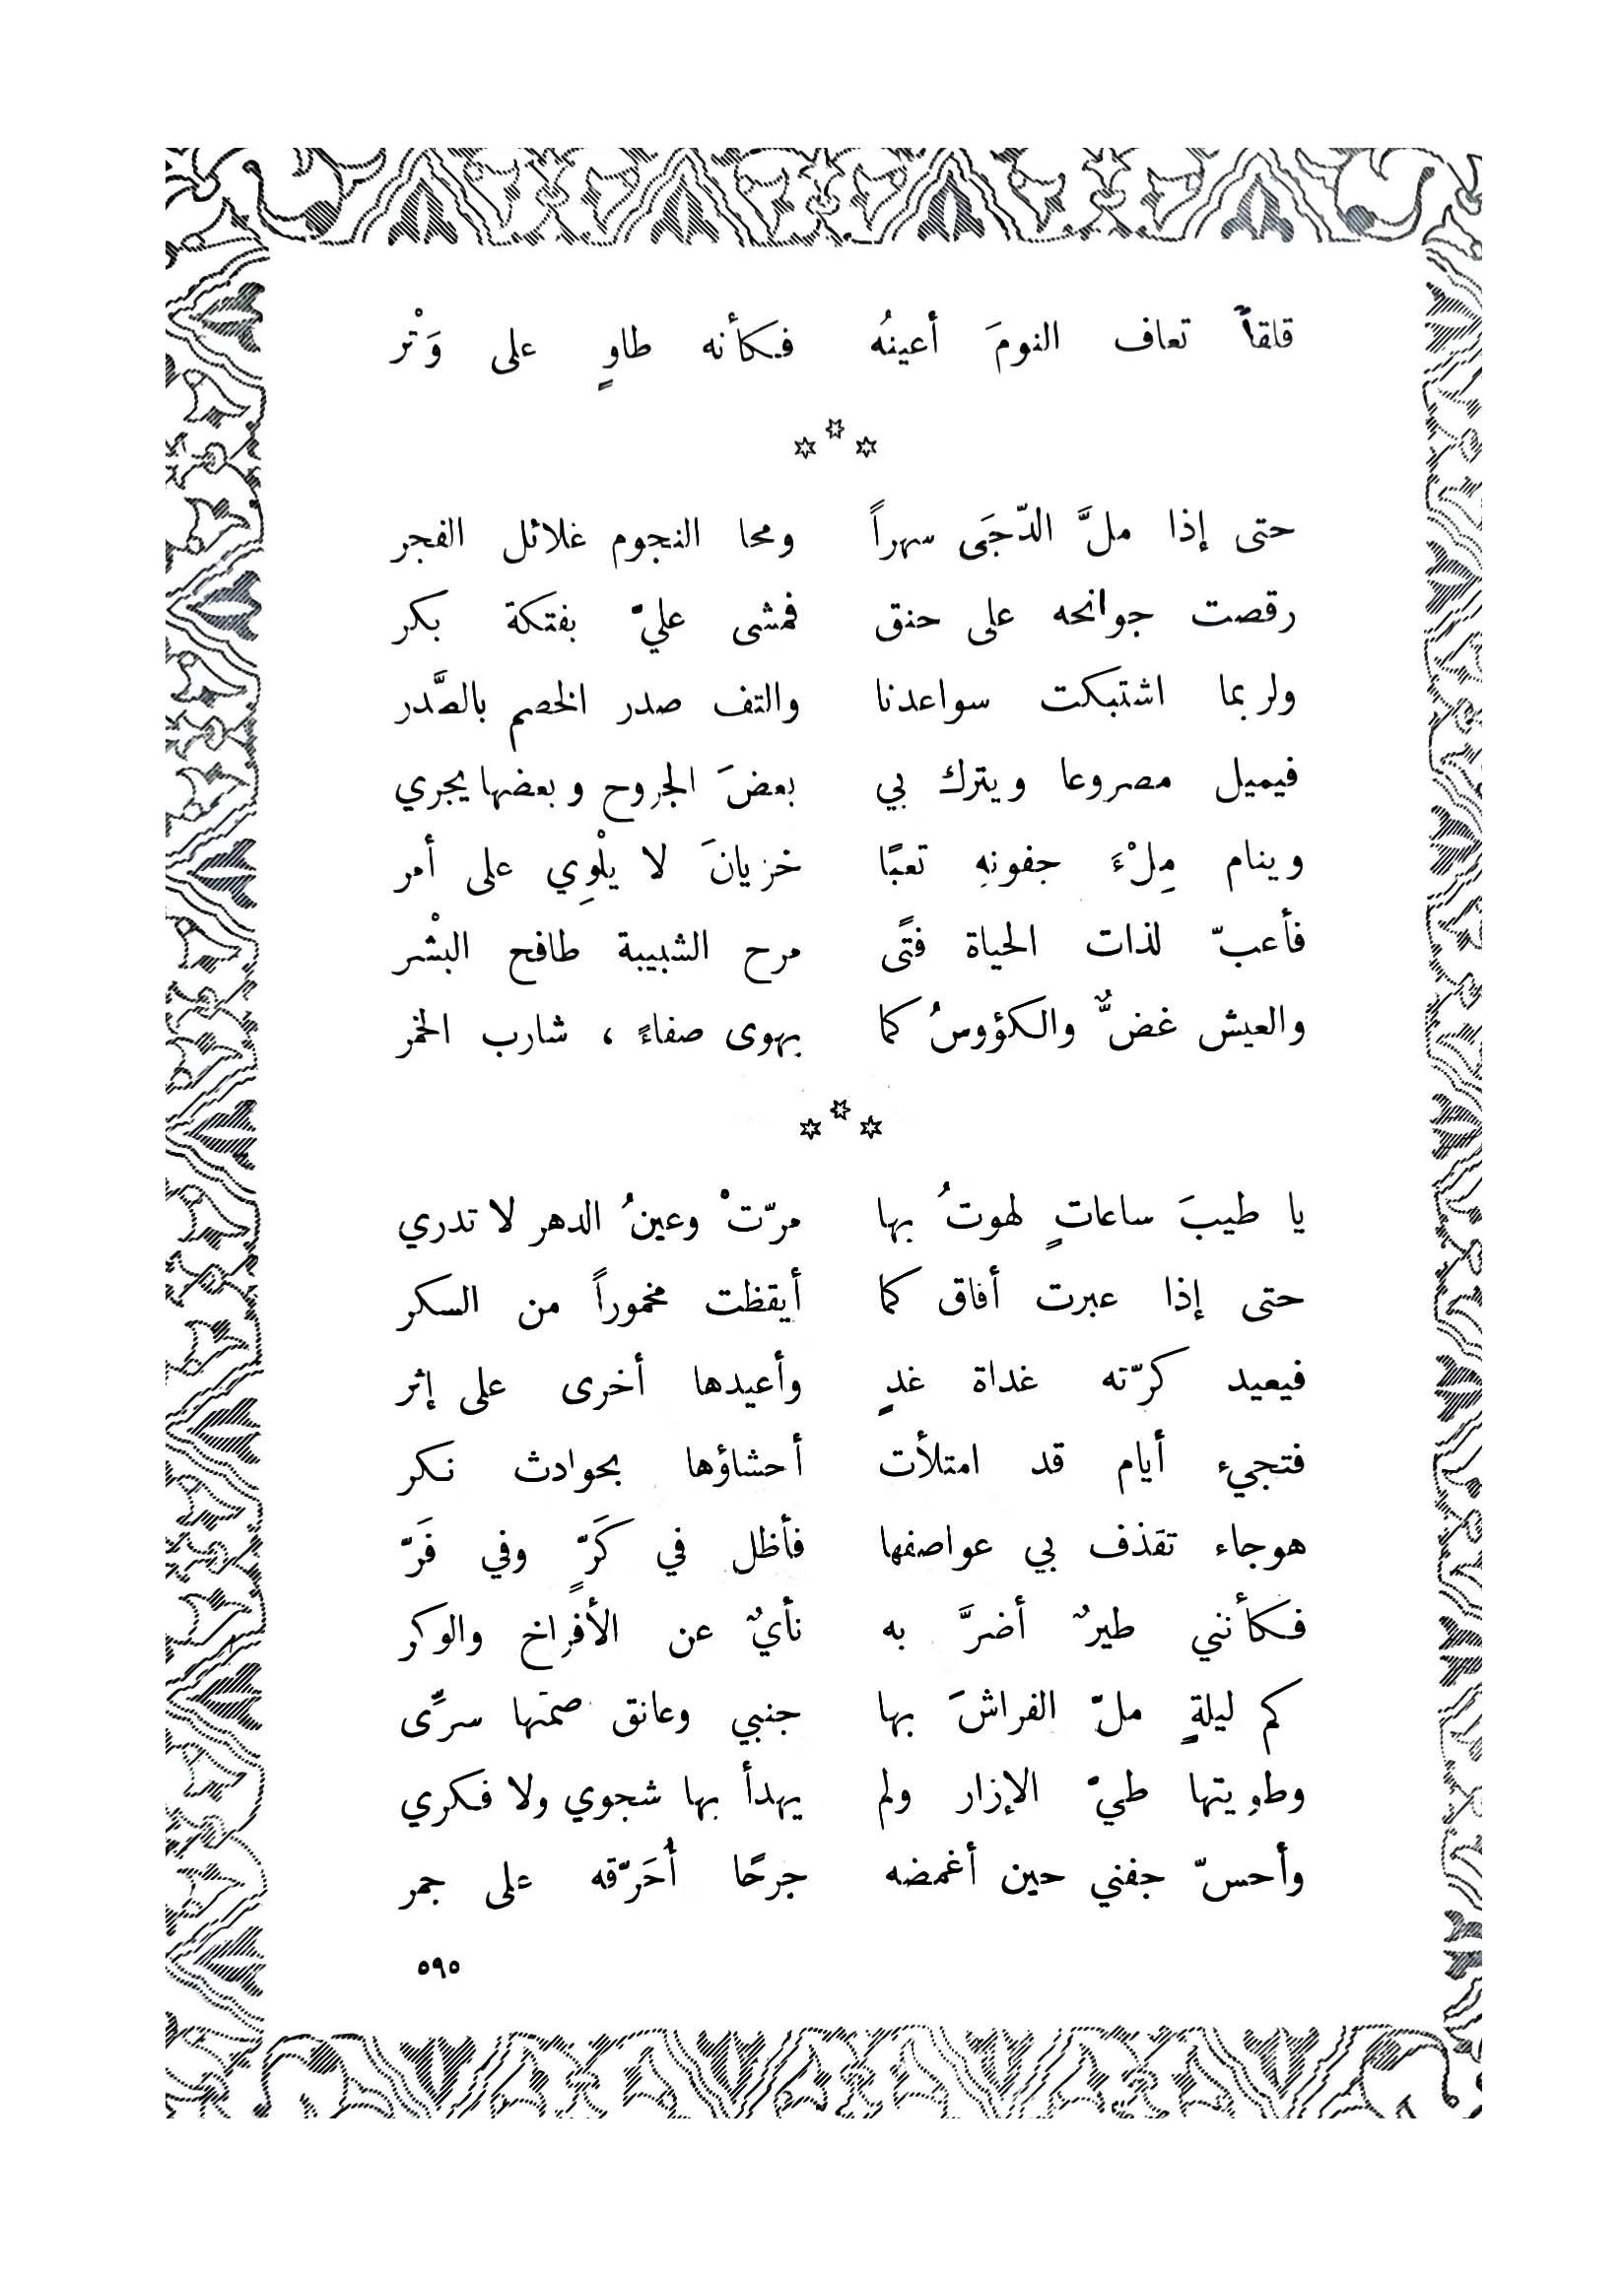 قلقاً تعاف النومَ أعينُه فكأنه طاوٍ على وَتْر
***
حتى إذا ملَّ الدّجَى سهراً ومحا النجوم غلائل الفجر
رقصت جوانحه على حنق فمشى عليّ بفتكة بكر
ولربما اشتبكت سواعدنا والتف صدر الخصم بالصَّدر
فيميل مصروعا ويترك بي بعضَ الجروح وبعضها يجري
وينام مِلْءَ جفونهِ تعبًا خزيانَ لا يلْوِي على أمر
فأعبّ لذات الحياة فتًى مرح الشبيبة طافح البشْر
والعيش غضٌّ والكؤوسُ كما يهوى صفاءً ، شارب الخمر
***
يا طيبَ ساعاتٍ لهوتُ بها مرّتْ وعينُ الدهر لا تدري
حتى إذا عبرت أفاق كما أيقظت مخموراً من السكر
فيعيد كرّته غداة غدٍ وأعيدها أخرى على إثر
فتجيء أيام قد امتلأت أحشاؤها بحوادث نكر
هوجاء تقذف بي عواصفها فأظل في كَرّ ٍ وفي فَرّ
فكأنني طيرٌ أضرَّ به نأيٌ عن الأفراخ والوكر
كم ليلةٍ ملّ الفراشَ بها جنبي وعانق صمتها سرِّى
وطويتها طيّ الإزار ولم يهدأ بها شجوي ولا فكري
وأحسّ جفني حين أغمضه جرحًا أُحَرّقه على جمر
٥٩٥